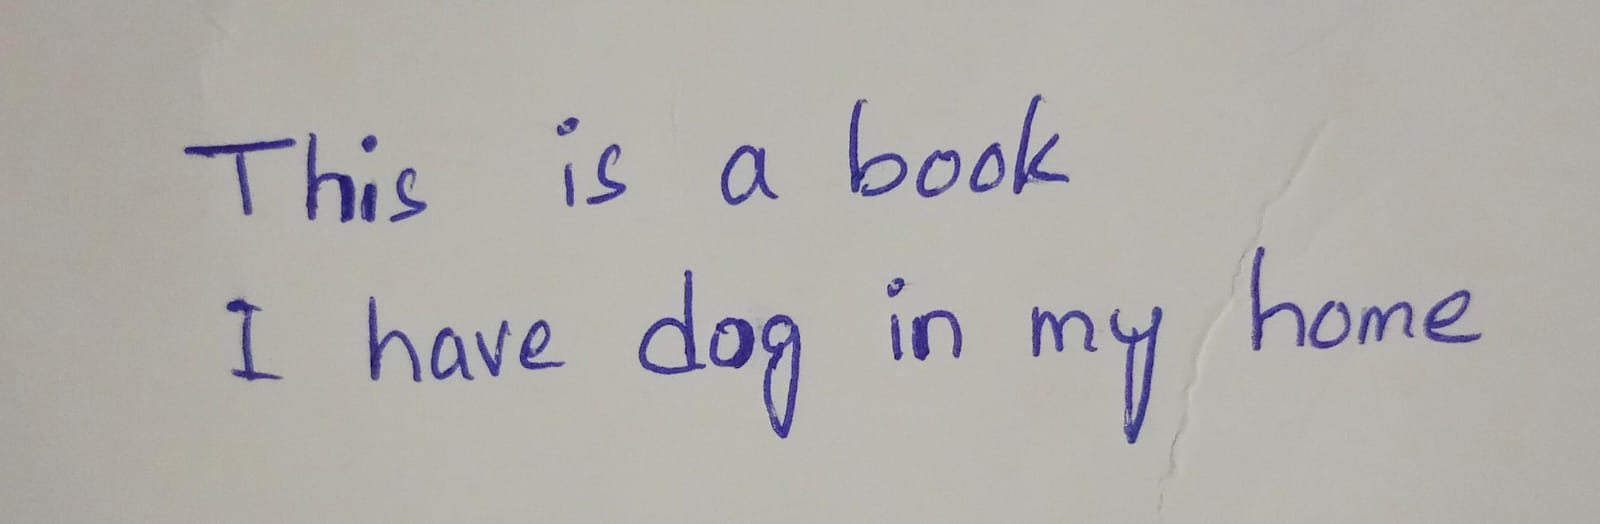 This is a book
I have dog in my home